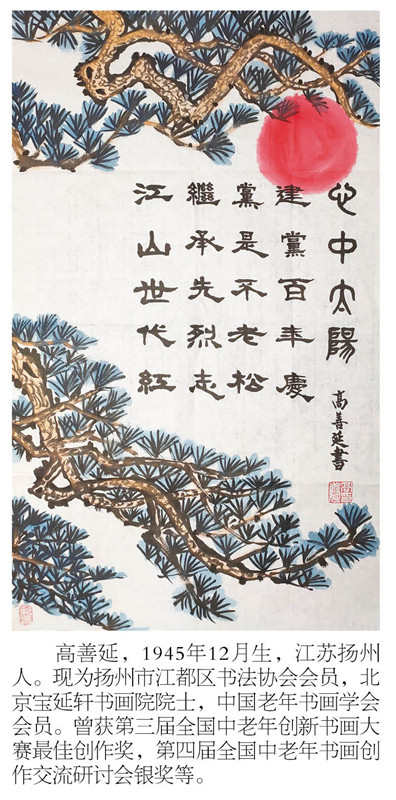 心中太陽
建黨百年慶
黨是不老松
繼承先烈志
江山世代紅
高善延書
高善延，1945年12月生，江苏扬州
人。现为扬州市江都区书法协会会员，北
京宝延轩书画院院士，中国老年书画学会
会员。曾获第三届全国中老年创新书画大
赛最佳创作奖，第四届全国中老年书画创
作交流研讨会银奖等。